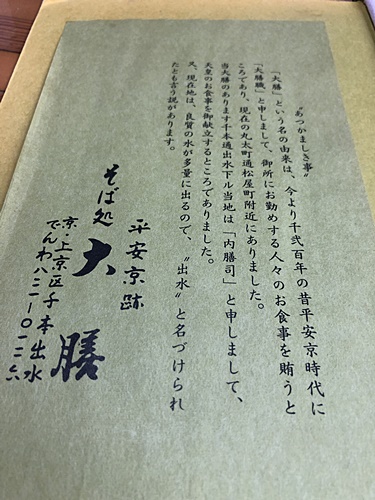 〝あつかましき事〟
「大膳」という名の由来は、今より千弐百年の昔平安京時代に
「大膳職」と申しまして、御所にお勤めする人々のお食事を賄うと
ころであり、現在の丸太町通松屋町附近にありました。
当大膳のあります千本通出水下ル当地は「内膳司」と申しまして、
天皇のお食事を御献立するところでありました。
又、現在地は、良質の水が多量に出るので、〝出水〟と名づけられ
たとも言う説があります。
平安京跡
そば処 大膳
京・上京区千本出水
でんわ八二一-〇一二六